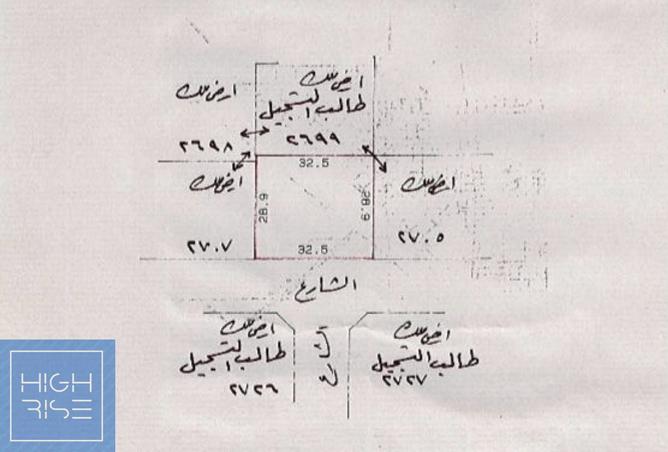 ارض ملك
ارض ملك
طالب التسجيل
٢٦٩٨
٢٦٩٩
32.5
ارض ملك
28.9
28.9
ارض ملك
٢٧٠٧
٢٧٠٥
32.5
الشارع
ارض ملك
طالب التسجيل
٢٧٢٦
الشارع
ارض ملك
طالب التسجيل
٢٧٢٧
HIGH
RISE